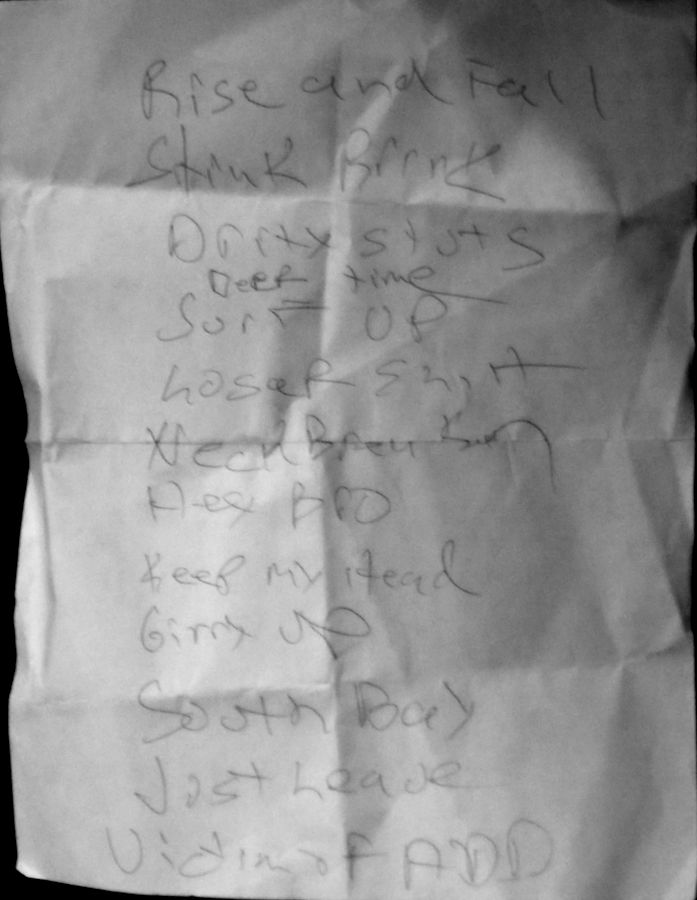 Rise and Fall
Stink Brink
Dirty sluts
Deep time
Surf UP
Loser Shirt
Neck Breaking
Hey BRO
Keep my Head
Girry UP
South Bay
Just Leave
Victim of ADD